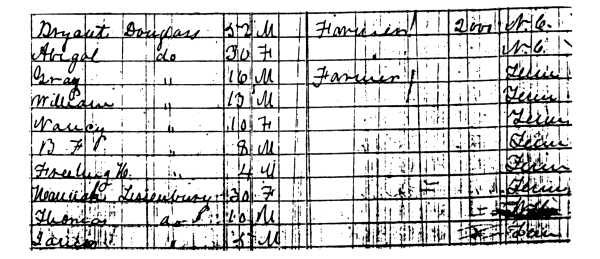 Bryant Douglass 52 M Farmer 2000 N.C.
Abigal do 30 F N.C.
Gray " 16 M Farmer Tenn
William " 13 M Tenn
Nancy " 10 F Tenn
B F " 8 M Tenn
Freeling H. " 4 M Tenn
Hannah 30 F Tenn
Thomas do 10 M
" M Tenn